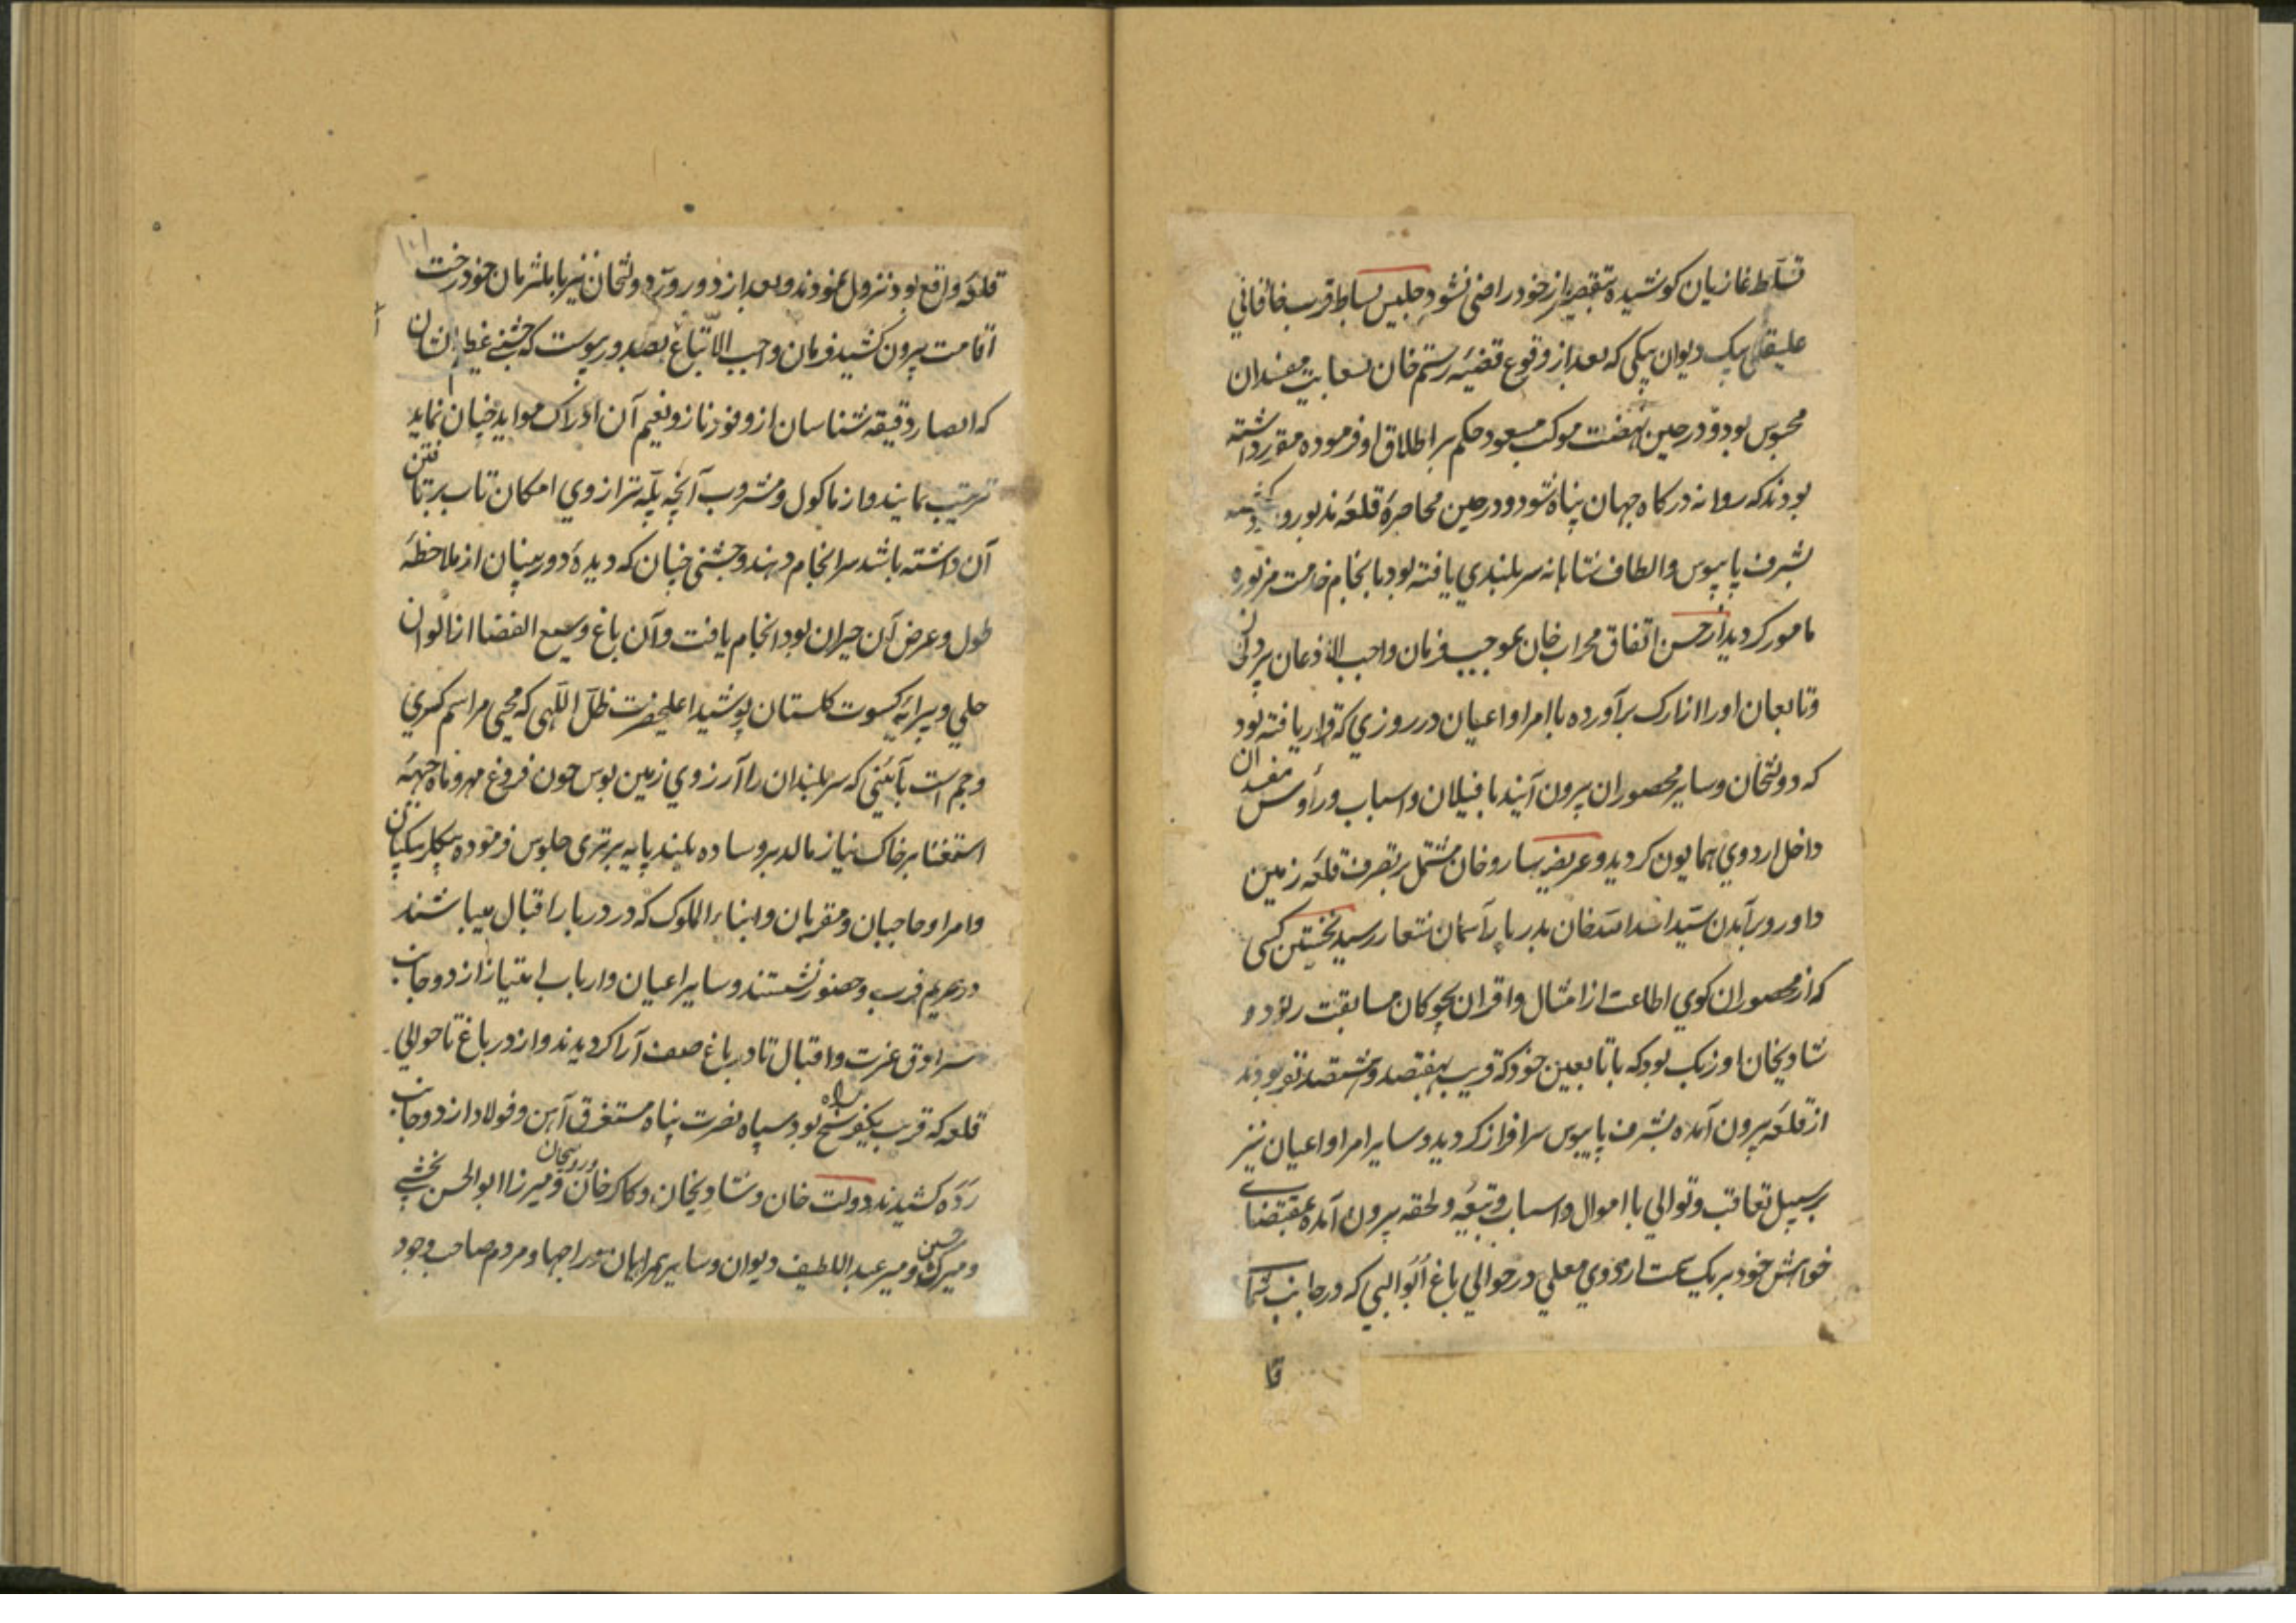 تسلط غازیان کوشیده بتقصیر از خود راضی نشود جلیس بساط قرب خاقانی
علیقلی بیک دیوان بیکی که بعد از وقوع قضیه رستم خان بسعایت مفسدان
محبوس بود و در حین نهضت موکب مسعود حکم بر اطلاق او فرموده مقرر داشته
بودند که روانه درکاه جهان پناه شود و در حین محاصرهٔ قلعه مذبور
بشرف پایبوس و الطاف شاهانه سربلندی یافته بود بانجام خدمت مزبوره
مامور کردید از حسن اتفاق محراب خان بموجب فرمان واجب الاذعان پردلخان
و تابعان او را از ارک برآورده با امرا و اعیان در روزی که قرار یافته بود
که دولتخان و سایر محصوران بیرون آیند با فیلان و اسباب و رأوس مفسدان
داخل اردوی همایون کردید و عریضه ساروخان مشتمل بر تصرف قلعه زمین
داور و برآمدن سید اسد الله خان بدربار آسمان شعار رسید نخستین کسی
که از محصوران کوی اطاعت از امثال و اقران بچوکان مسابقت ربود
شادیخان اوزبک بود که با تابعین خود که قریب بهفتصد و هشتصد نفر بودند
از قلعه بیرون آمده بشرف پایبوس سرافراز کردید و سایر امرا و اعیان نیز
بر سبیل تعاقب و توالی با اموال و اسباب و تبعه و لحقه بیرون آمده بمقتضای
خواهش خود بر یک سمت اردوی معلی در حوالی باغ که در جانب شمال
قلعه واقع بود نزول نمودند و بعد از دو روز دولتخان نیز با ملتزمان خود رخت
اقامت بیرون کشید فرمان واجب الاتباع بصدور پیوست که جشنی عظیم الشان
که ابصار دقیقه شناسان از وفور ناز و نعیم آن ادراک مواید جنان نماید
ترتیب نمایند و از ماکول و مشروب آنچه پله ترازوی امکان تاب برتافتن
آن داشته باشد سرانجام دهند و جشنی چنان که دیدهٔ دوربینان از ملاحظهٔ
طول و عرض آن حیران بود انجام یافت و آن باغ وسیع الفضا از الوان
حلی و پیرایه کسوت کلستان پوشید اعلیحضرت ظل اللهی که محیی مراسم کسری
و جم است بآئینی که سربلندان را آرزوی زمین بوس چون فروغ مهر و ماه جبههٔ
استغنا بر خاک نیاز مالد بر وساده بلند پایه برتری جلوس فرموده بیکلربیکیان
و امرا و حاجبان و مقربان و ابناء الملوک که در دربار اقبال میباشند
در حریم قرب و حضور نشستند و سایر اعیان و ارباب امتیاز از دو جانب
سرادق عزت و اقبال تا در باغ صف آرا کردیدند و از در باغ تا حوالی
قلعه که قریب بیکفرسخ راه بود سپاه نصرت پناه مستغرق آهن و فولاد از دو جانب
رده کشیدند دولت خان و شادیخان و کاکر خان و میرزا ابو الحسن بخشی
و میرک حسین و میر عبد اللطیف دیوان و سایر همراهان و راجها و مردم صاحب وجود